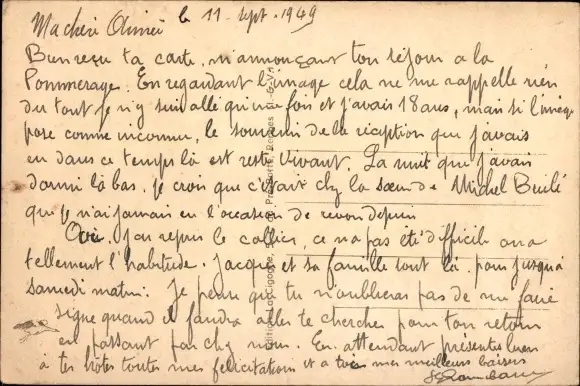 le 11 sept. 1949
Ma chère Aimée
Bien reçu ta carte, m'annonçant ton séjour a la
Pommeraye. En regardant l'image cela ne me rappelle rien
du tout je n'y suis allé qu'une fois et j'avais 18 ans, mais si l'image
pose comme inconnu, le souvenir de la réception que j'avais
eu dans ce temps là est resté vivant. La nuit que j'avais
dormi là bas, je crois que c'était chez la sœur de Michel
que je n'ai jamais eu l'occasion de revoir depuis
Oui, j'ai repris le collier, ce n'a pas été difficile on a
tellement l'habitude. Jacques et sa famille sont là pour jusqu'à
samedi matin. Je pense que tu n'oublieras pas de me faire
signe quand il faudra aller te chercher pour ton retour
en passant par chez nous. En attendant présentes bien
à tes hôtes toutes mes félicitations et a toi mes meilleurs baisers